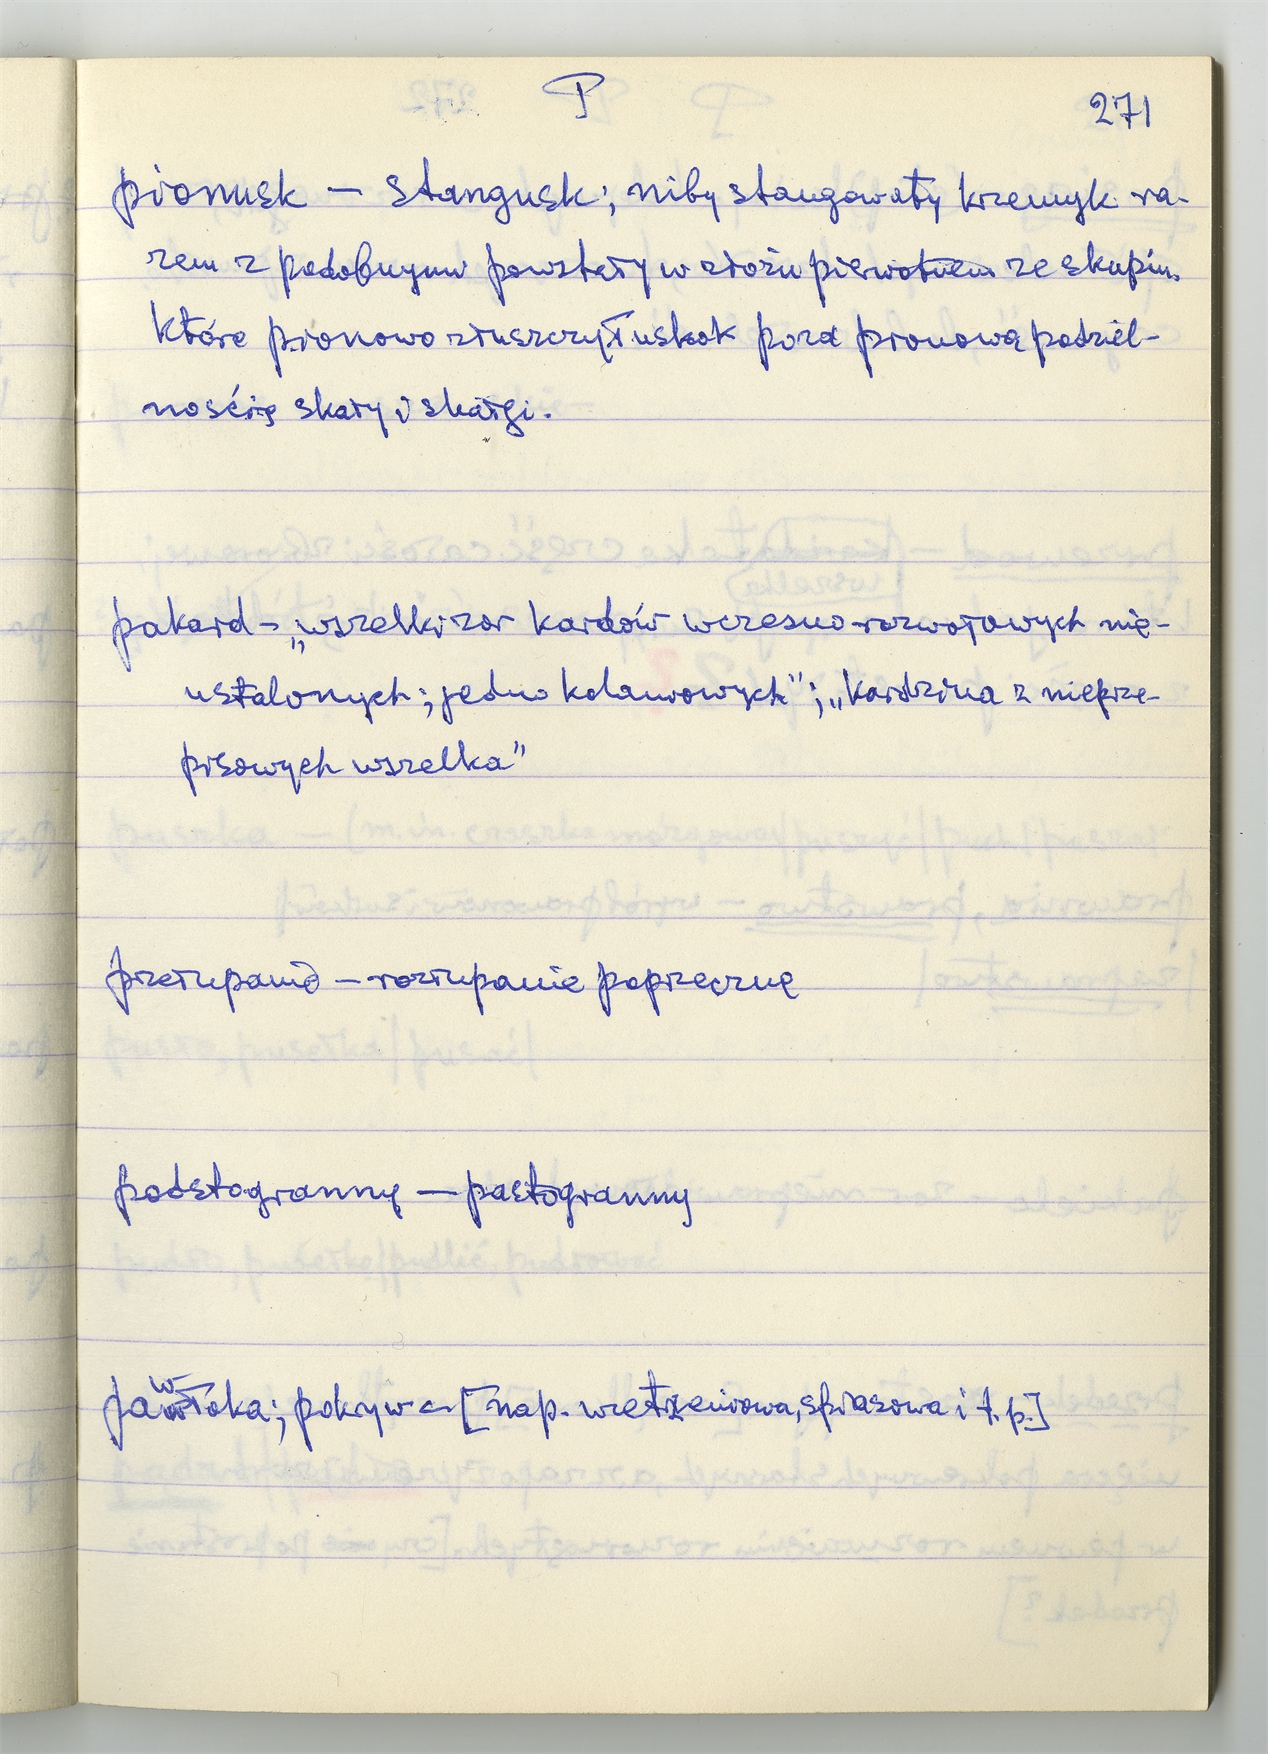 P 271
pionusk — stangusk; niby stangowaty krzemyk ra-
zem z podobnymi powstały w złożu pierwotnem ze skupin,
które pionowo złuszczył uskok poza pionową podziel-
nością skały i skałgi.
pakard - „wszelki zor kardów wczesno-rozwojowych nie-
ustalonych; jedno kolanowych"; „kardzina z nieprze-
pisowych wszelka"
przełupanie — rozłupanie poprzeczne
podstogranny — pastogranny
pawłoka; pokrywa [nap. wietrzeniowa, spiasowa i t. p.]